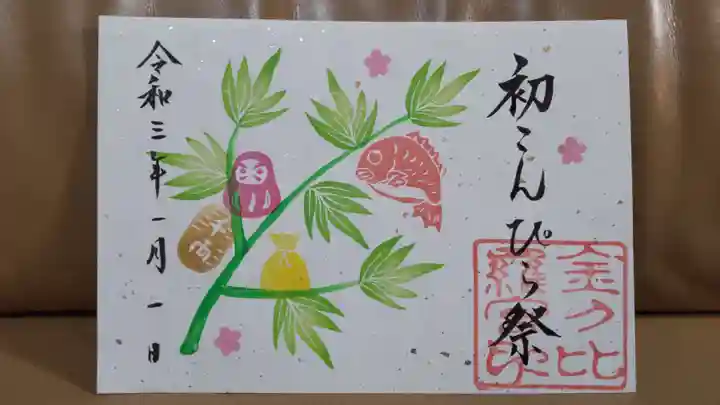 初こんぴら祭
金刀比
羅宮印
令和三年一月一日